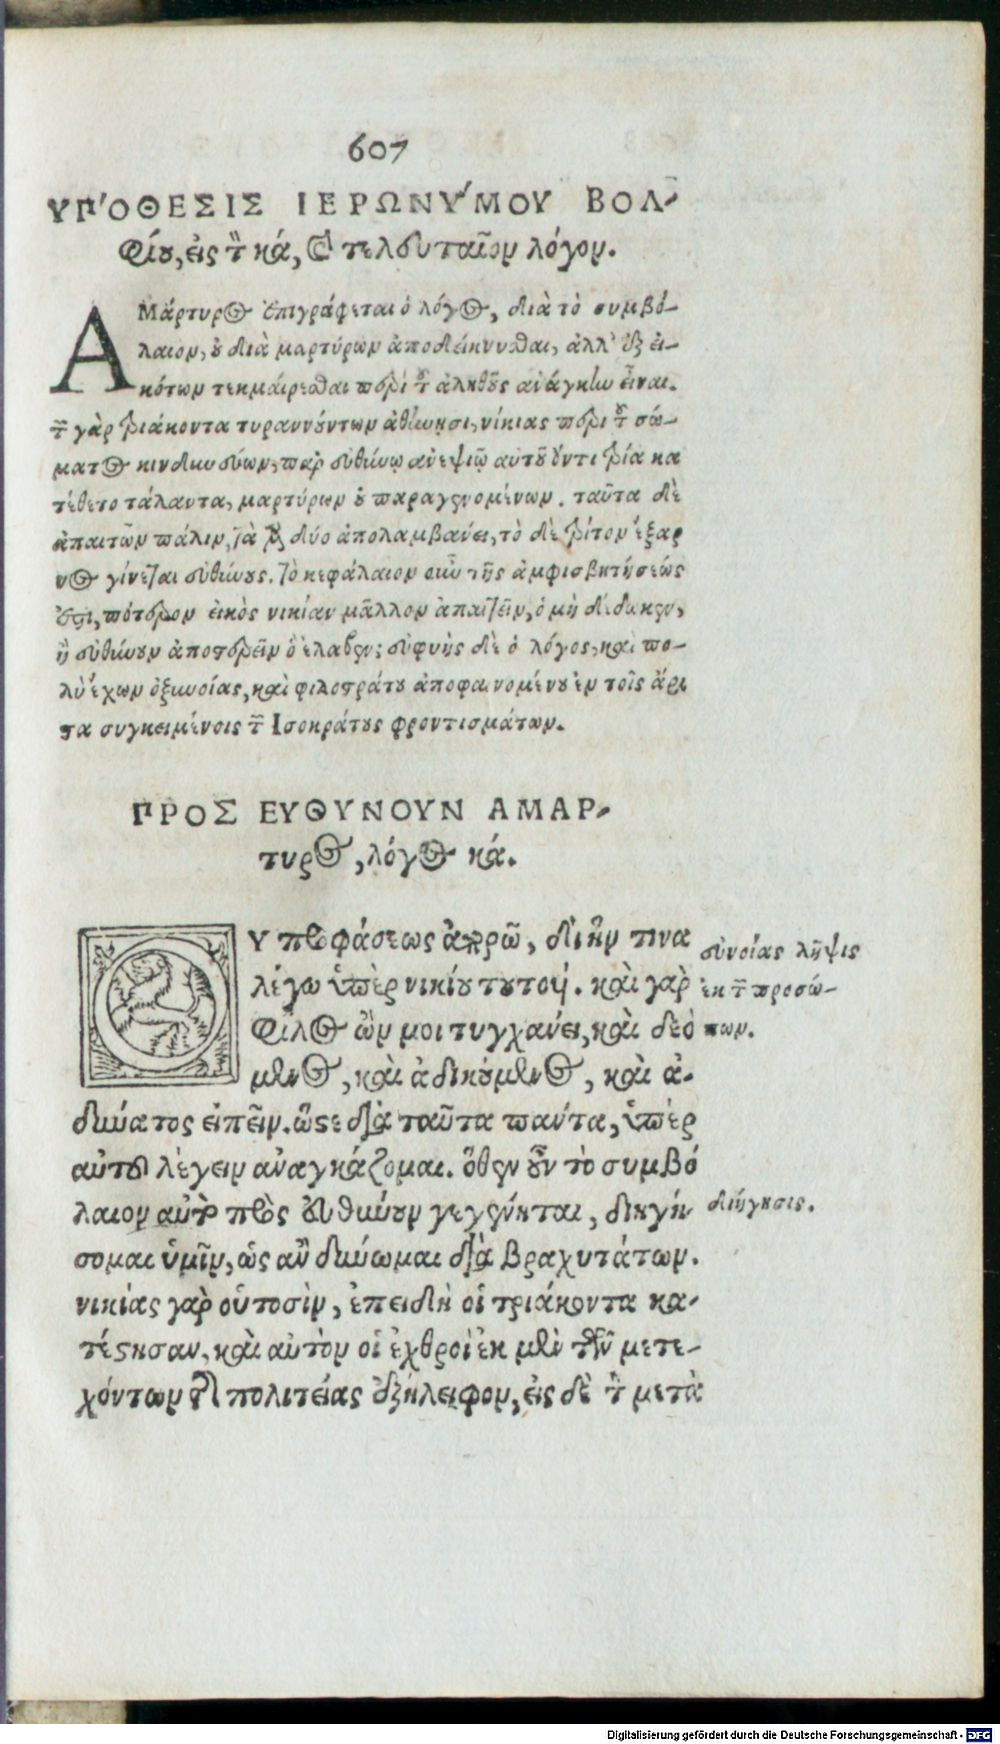 607
ΥΠΌΘΕΣΙΣ ΙΕΡΩΝΎΜΟΥ ΒΟΛ-
φίου, εἰς τὸν κά, καὶ τελευταῖον λόγον.
ΑΜάρτυρος ἐπιγράφεται ὁ λόγος, διὰ τὸ συμβό-
λαιον, οὐ διὰ μαρτύρων ἀποδείκνυσθαι, ἀλλ' ἐξ εἰ-
κότων τεκμαίρεσθαι περὶ τοῦ ἀληθοῦς ἀνάγκην εἶναι.
τῶν γὰρ τριάκοντα τυραννούντων ἀθήνησι, νικίας περὶ τοῦ σώ-
ματος κινδυνεύων, παρ' εὐθύνῳ ἀνεψιῷ αὐτοῦ ὄντι τρία κα
τέθετο τάλαντα, μαρτύρων οὐ παραγενομένων. ταῦτα δὲ
ἀπαιτῶν πάλιν, τὰ μὲν δύο ἀπολαμβάνει, τὸ δὲ τρίτον ἔξαρ
νος γίνεται εὐθύνους. τὸ κεφάλαιον οὖν τῆς ἀμφισβητήσεώς
ἐστι, πότερον εἰκὸς νικίαν μᾶλλον ἀπαιτεῖν, ὃ μὴ δέδωκεν,
ἢ εὐθύνουν ἀποστερεῖν ὃ ἔλαβεν; εὐφυὴς δὲ ὁ λόγος, καὶ πο-
λὺ ἔχων ὀξυνοίας, καὶ φιλοστράτου ἀποφαινομένου ἐν τοῖς ἄρι
στα συγκειμένοις τῶν Ισοκράτους φροντισμάτων.
ΠΡΟΣ ΕΥΘΥΝΟΥΝ ΑΜΑΡ-
τυρος, λόγος κά.
ΟΥ προφάσεως ἀπορῶ, δι' ἥν τινα
λέγω ὑπὲρ νικίου τουτουί. καὶ γὰρ
φίλος ὤν μοι τυγχάνει, καὶ δεό
μενος, καὶ ἀδικούμενος, καὶ ἀ-
δύνατος εἰπεῖν. ὥστε διὰ ταῦτα πάντα, ὑπὲρ
αὐτοῦ λέγειν ἀναγκάζομαι. ὅθεν οὖν τὸ συμβό
λαιον αὐτῷ πρὸς εὐθύνουν γεγένηται, διηγή-
σομαι ὑμῖν, ὡς ἂν δύνωμαι διὰ βραχυτάτων.
νικίας γὰρ οὑτοσὶν, ἐπειδὴ οἱ τριάκοντα κα-
τέστησαν, καὶ αὐτὸν οἱ ἐχθροὶ ἐκ μὲν τῶν μετε-
χόντων τῆς πολιτείας ἐξήλειφον, εἰς δὲ τὸν μετὰ
εὐνοίας λῆψις
ἐκ τῶν προσώ-
πων.
διήγησις.
Digitalisierung gefördert durch die Deutsche Forschungsgemeinschaft - DFG